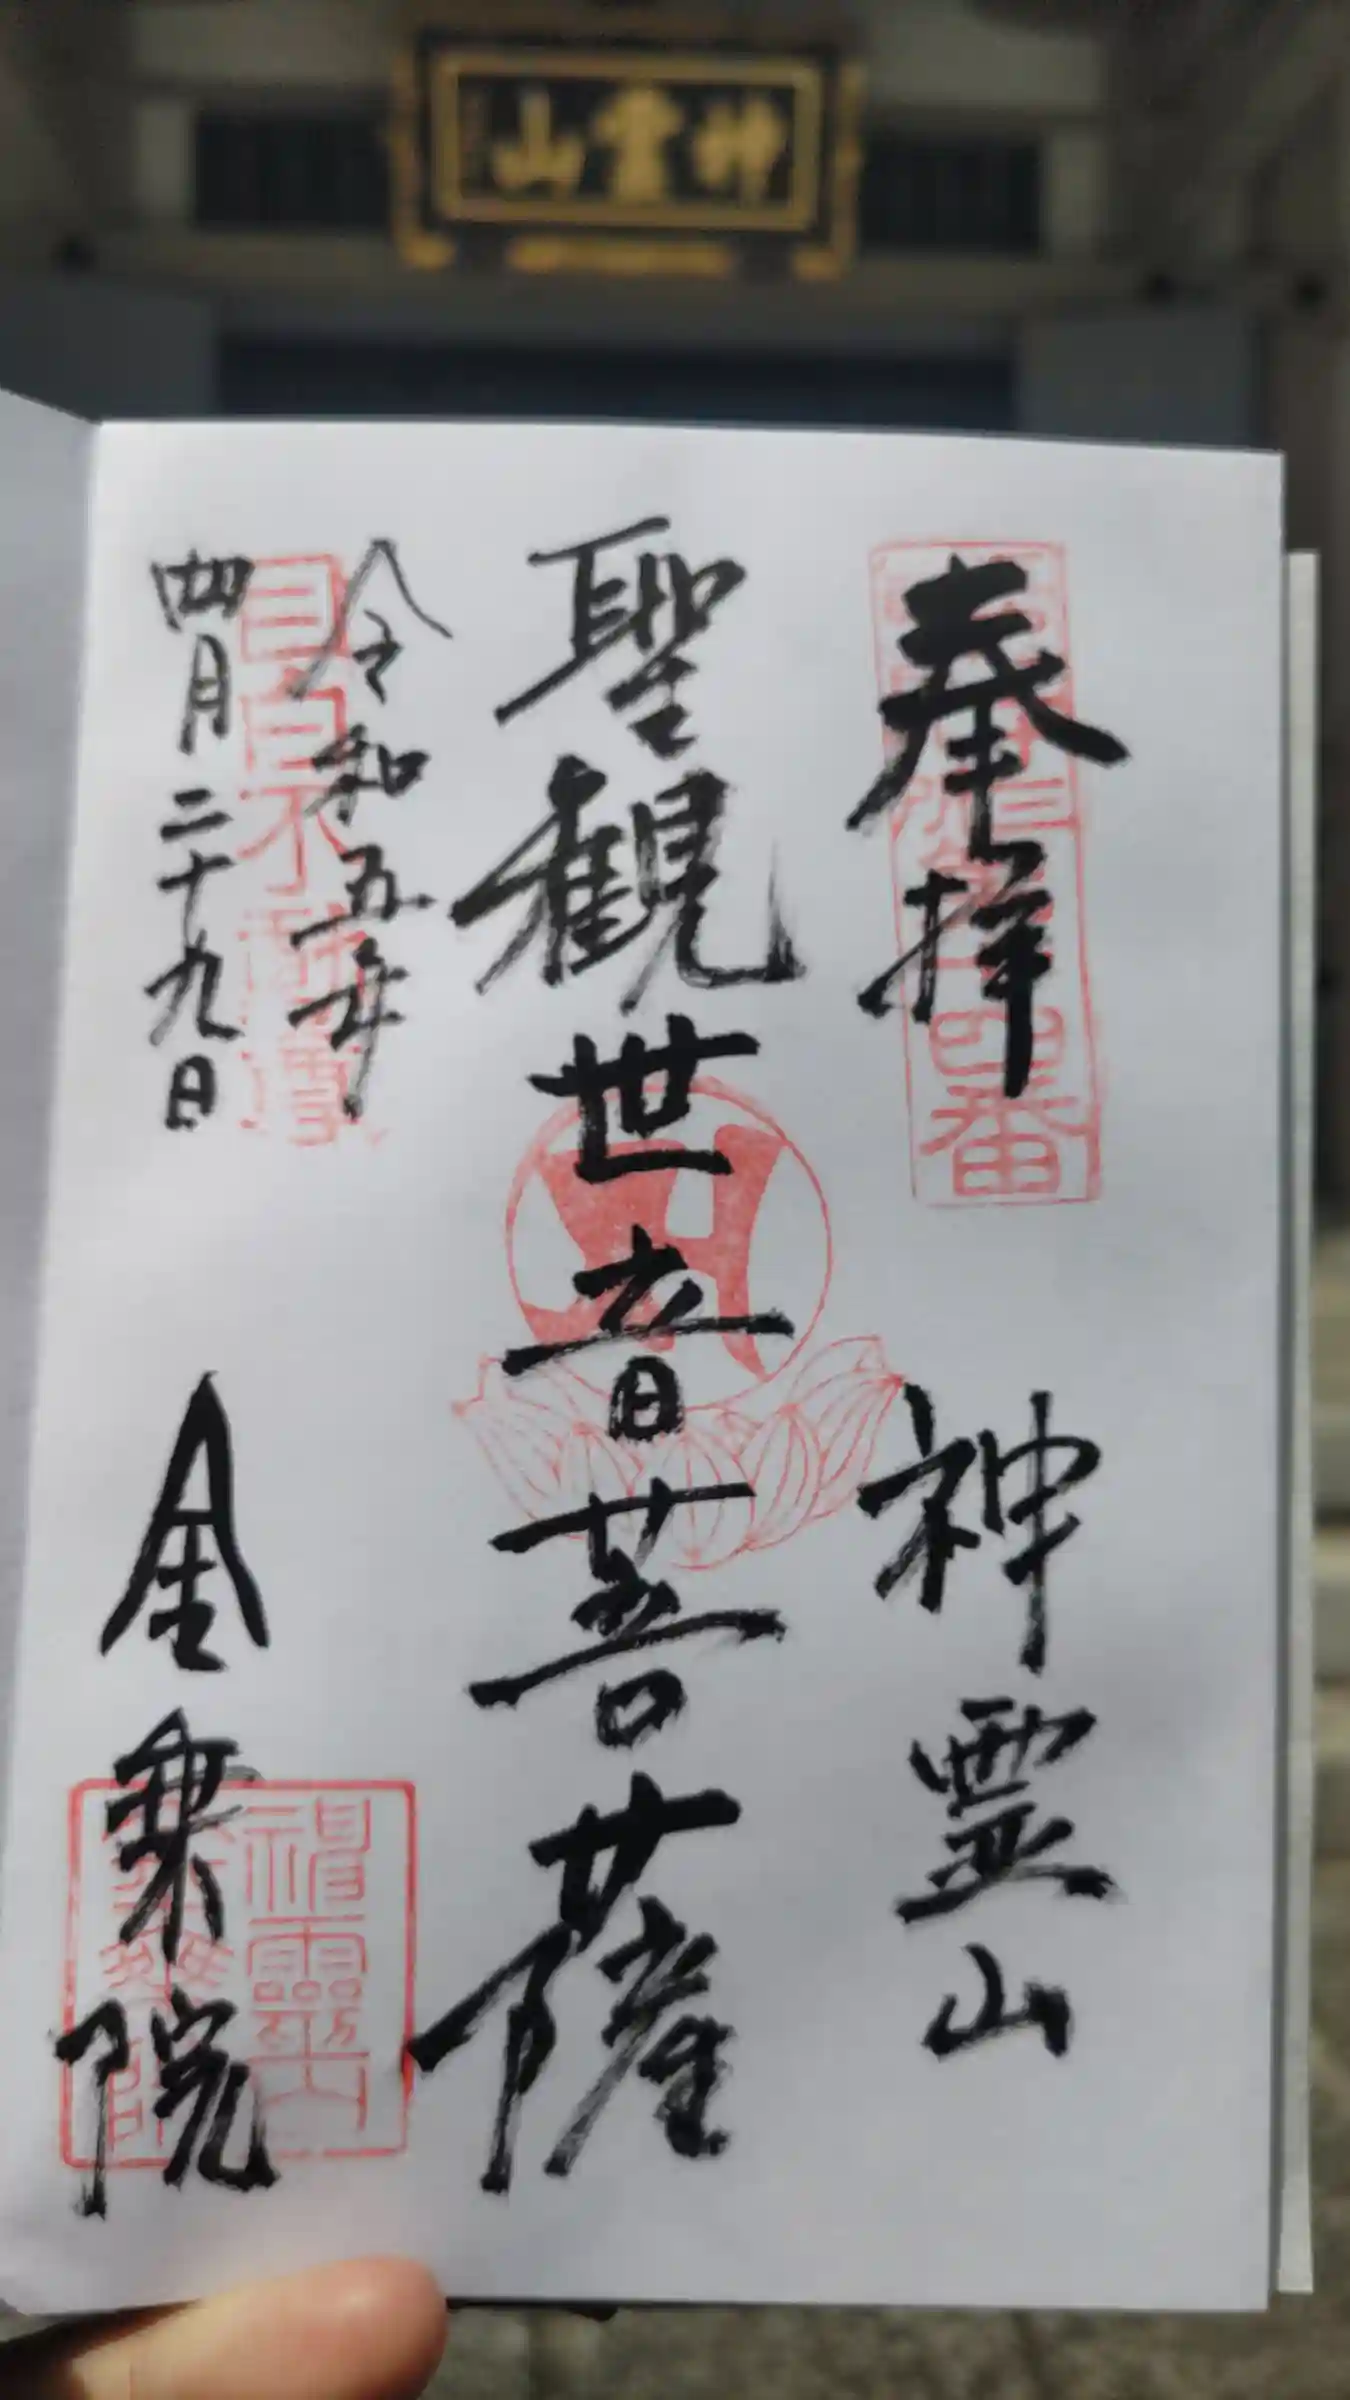 神霊山
奉拝
神霊山
聖観世音菩薩
令和五年
四月二十九日
金乗院
目白不動尊
四番